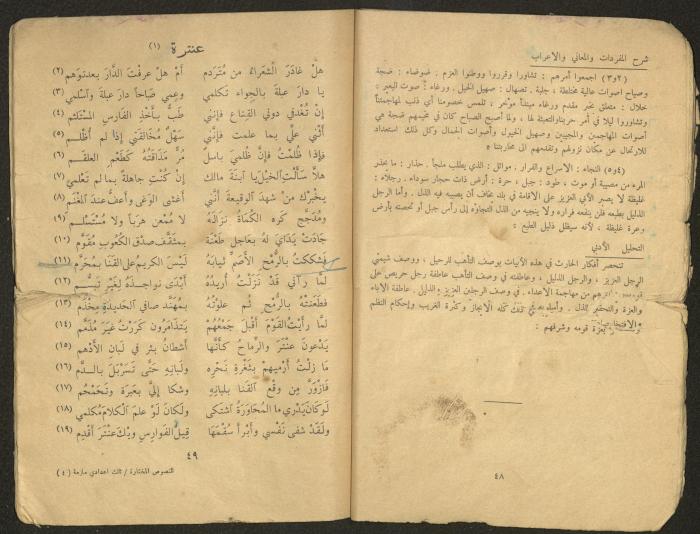 شرح المفردات والمعاني والاعراب
(٢و٣) اجمعوا أمرهم : تشاوروا وقرروا ووطنوا العزم . ضوضاء : ضجة
وصياح اصوات عالية مختلطة ، جلبة . تصهال : صهيل الخيل . ورغاء : صوت البعير :
خلال :
وتشاوروا ليلا في أمر
أصوات المهاجمين والمجيبين وصهيل الخيل وأصوات الجمال وكل ذلك استعداد
للارتحال عن مكان نزولهم وتقدمهم الى محاربتنا .
(٤و٥) النجاء : الاسراع والفرار . موائل : الذي يطلب ملجأ . حذار : ما يحذر
المرء من مصيبة أو موت ، طود : جبل ، حرة : أرض ذات حجار سوداء . رجلاء :
غليظة لا يصبر الآبي العزيز على الاقامة في بلد يخاف أن يصيبه فيه الذل . وأما الرجل
الذليل بطبعه فلن ينفعه فراره ولا ينجيه من الذل التجاؤه إلى رأس جبل أو تحصنه بأرض
وعرة غليظة ، لأنه سيظل ذليل الطبع :
التحليل الأدبي
تنحصر أفكار الحارث في هذه الأبيات بوصف التأهب للرحيل ، ووصف شيمتي
الرجل العزيز ، والرجل الذليل ، وعاطفته في وصف التأهب عاطفة رجل حريص على
من مهاجمة الاعداء . وفي وصف الرجلين العزيز والذليل . عاطفة الاباء
والعزة والتحقير للذل . الايجاز وكثرة الغريب وإحكام النظم
والافتخار بعزة قومه وشرفهم :
٤٨
عنترة (١)
هل غادَرَ الشعراءُ من مُتَرَدم أمْ هلْ عرفتَ الدَّارَ بعدَتوَهم (٢)
يا دارَ عبلةَ بالجواء تكلمي وعِمي صَبَاحاً دارَ عبلةَ وآسْلمي (٣)
إنْ تُغْدفي دوني القِناعَ فإنني طَبٌّ بأخْذِ الفارِسِ المُسْتلئم (٤)
أثْني عليَّ بما علمتِ فإنني سَهْلٌ مُخالَقتي إذا لم أُظْلم (٥)
فإذا ظُلمتُ فإنَّ ظلميَ باسلٌ مُرٌّ مَذَاقَتُهُ كطَعْمِ العلقم (٦)
هلاَّ سَألْتِ الخيْلَ يا آبنةَ مالك إنْ كُنْتِ جاهلةً بما لم تَعْلمي (٧)
يخْبرْكِ من شهدَ الوقيعةَ أنني أغشى الوَغى وأعفُّ عندَ المَغْنَم (٨)
ومُدَجج كَرهَ الكُماةُ نزالَهُ لا مُمْعن هرَباً ولا مُسْتسْلم (٩)
جادَتْ يَدايَ لهُ بعاجلِ طعْنة بمثقفٍ صدْقِ الكُعوبِ مُقَوَّمِ (١٠)
فشككتُ بالرُّمْحِ الأصَمِّ ثيابَهُ ليْسَ الكريمُ على القَنا بمُحَرَّمِ (١١)
لمَّا رآني قَدْ نَزَلْتُ أُريدُهُ أبْدَى نواجِذَهُ لِغَيْرِ تبَسُّمِ (١٢)
فطَعَنْتُهُ بالرُّمْحِ ثُم علوْتُهُ بمُهَنَّدٍ صافي الحَديدةِ مِخْذَم (١٣)
لمَّا رأيْتُ القَوْمَ أقْبَلَ جَمْعُهُمْ يَتذامَرُون كَرَرْتُ غَيرَ مُذَمَّم (١٤)
يَدْعُونَ عنْتَرَ والرِّماحُ كأنَّها أشطانُ بئر في لَبانِ الأدْهم (١٥)
ما زلْتُ أرْميهِمْ بثُغْرةِ نَحْرِه ولَبانِهِ حتَّى تَسَرْبَلَ بالدَّم (١٦)
فازْوَرَّ مِن وقْعِ القَنا بلَبانِهِ وشكا إليَّ بعَبْرَة وتَحَمْحُم (١٧)
لوْ كانَ يَدْري ما المُحَاوَرةُ اشتكى ولكانَ لوْ علمَ الكلامَ مُكلمي (١٨)
ولقَدْ شفى نَفْسي وأبْرأ سُقمَهَا قيلُ الفَوارِسِ ويْكَ عنْتَرَ أقْدِم (١٩)
٤٩
النصوص المختارة / ثالث اعدادي ملزمة (٤)